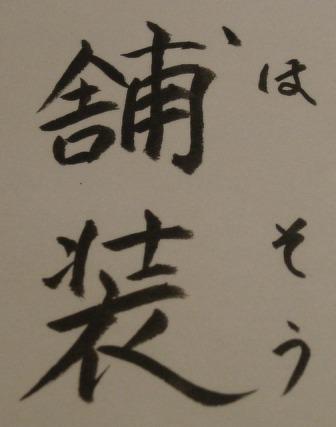 舗装
ほそう